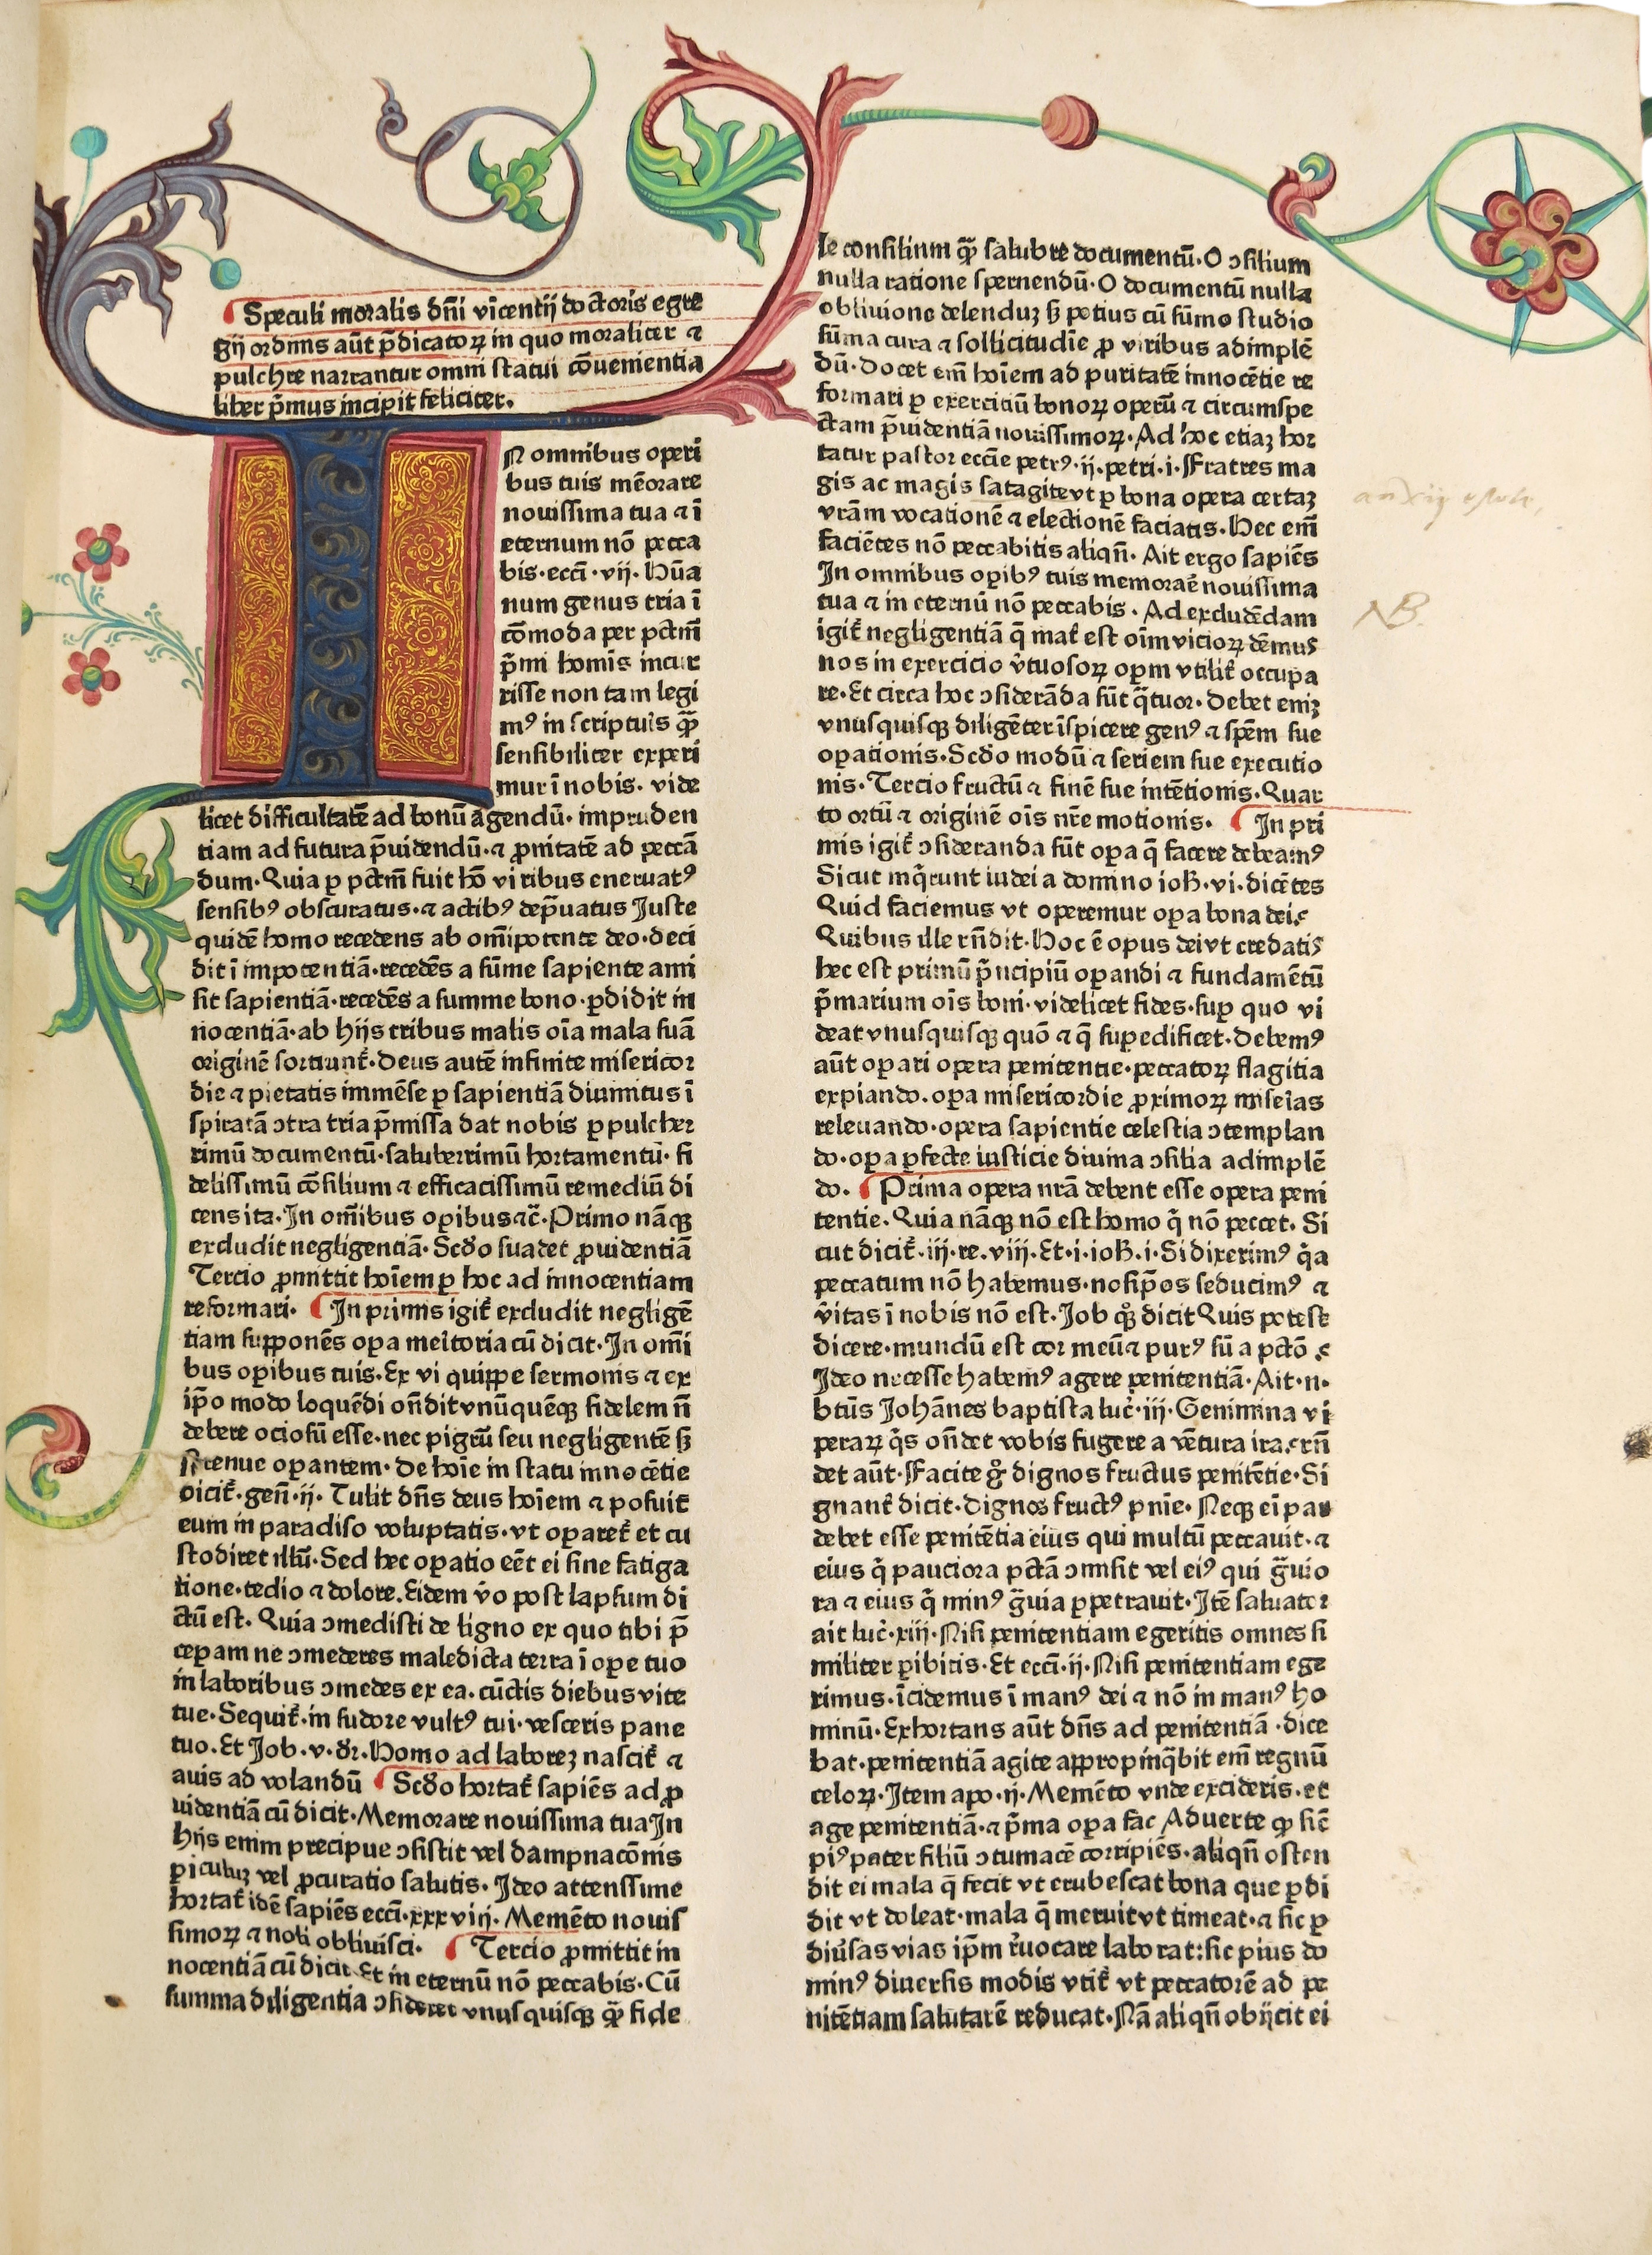 Speculi moralis dñi vincentij doctoris egre
gij ordinis aūt p̄dicatoꝝ in quo moraliter ⁊
pulchre narrantur omni statui cōuenientia
liber p̄mus incipit feliciter.
N omnibus operi
bus tuis mēorare
nouissima tua ⁊ ī
eternum nō pecca
bis·eccī·vij·Hūa
num genus tria ī
cōmoda per pctm̄
p̄mi homīs incur
risse non tam legi
mꝰ in scriptuis qꝫ̄
sensibiliter experi
mur ī nobis· vide
licet difficultatē ad bonū agendū· impruden
tiam ad futura p̄uidendū·⁊ ꝓnitatē ad peccā
dum·Quia ꝑ pctm̄ fuit hō viribus eneruatꝰ
sensibꝰ obscuratus·⁊ actibꝰ dep̄uatus Juste
quidē homo recedens ab om̄ipotente deo·deci
dit ī impotentiā·recedēs a sūme sapiente ami
sit sapientiā·recedēs a summe bono·ꝑdidit in
nocentiā·ab hijs tribus malis oīa mala suā
originē sortiunt̄·Deus autē infinite misericor
die ⁊ pietatis immēse ꝑ sapientiā diuinitus ī
spiratā ↄtra tria p̄missa dat nobis ꝑpulcher
rimū documentū·saluberrimū hortamentū· fi
delissimū cōsilium ⁊ efficacissimū remediū di
cens ita·In om̄ibus oꝑibus⁊c̄·Primo nāqꝫ
excludit negligentiā·Scd̄o suadet ꝓuidentiā
Tercio ꝓmittit hoīem ꝑ hoc ad innocentiam
reformari· In primis igit̄ excludit negligē
tiam supponēs oꝑa meītoria cū dicit·In om̄i
bus oꝑibus tuis·Ex vi quippe sermonis ⁊ ex
ip̄o modo loquēdi on̄dit vnūquēqꝫ fidelem n̄
debere ociosū esse·nec pigrū seu negligentē sꝫ
strenue oꝑantem· De hoīe in statu innocētie
dicit̄·geñ·ij· Tulit dn̄s deus hoīem ⁊ posuit
eum in paradiso voluptatis·vt oꝑaret̄ et cu
stodiret illū·Sed hec oꝑatio eēt ei sine fatiga
tione·tedio ⁊ dolore·Eidem v̄o post lapsum di
ctū est· Quia ↄmedisti de ligno ex quo tibi p̄
ceꝑam ne ↄmederes maledicta terra ī oꝑe tuo
in laboribus ↄmedes ex ea· cūctis diebus vite
tue·Sequit̄·in sudore vultꝰ tui·vesceris pane
tuo·Et Job·v·d̄r·Homo ad laboreꝫ nascit̄ ⁊
auis ad volandū Scd̄o hortat̄ sapiēs ad ꝓ
uidentiā cū dicit·Memorare nouissima tua In
hijs enim precipue ↄsistit vel dampnacōnis
ꝑiculuꝫ vel ꝓcuratio salutis· Ideo attentissime
hortat̄ idē sapiēs eccī·xxxviij· Memēto nouis
simoꝝ ⁊ noli obliuisci· Tercio ꝓmittit in
nocentiā cū dicit Et in eternū nō peccabis·Cū
summa diligentia ↄsideret vnusquisqꝫ qꝫ̄ fide
le consilium qꝫ̄ salubre documentū·O ↄsilium
nulla ratione spernendū·O documentū nulla
obliuione delenduꝫ sꝫ potius cū sūmo studio
sūma cura ⁊ sollicitudīe ꝓ viribus adimplē
dū·docet em̄ hoīem ad puritatē innocētie re
formari ꝑ exercitiū bonoꝝ operū ⁊ circumspe
ctam p̄uidentiā nouissimoꝝ·Ad hoc etiaꝫ hor
tatur pastor eccīe petrꝰ·ij·petri·i·Fratres ma
gis ac magis satagite vt ꝑ bona opera certaꝫ
vrām vocationē ⁊ electionē faciatis·Hec em̄
faciētes nō peccabitis aliqn̄· Ait ergo sapiēs
In omnibus oꝑibꝰ tuis memorarē nouissima
tua ⁊ in eternū nō peccabis· Ad excludēdam
igit̄ negligentiā q̄ mat̄ est oīm vicioꝝ dēmus
nos in exercicio v̄tuosoꝝ oꝑm vtilit̄ occupa
re·Et circa hoc ↄsiderāda sūt q̄tuor·Debet eniꝫ
vnusquisqꝫ diligēter īspicere genꝰ ⁊ spēm sue
oꝑationis·Scd̄o modū ⁊ seriem sue executio
nis·Tercio fructū ⁊ finē sue intētionis·Quar
to ortū ⁊ originē oīs nr̄e motionis· In pri
mis igit̄ ↄsideranda sūt oꝑa q̄ facere debeamꝰ
Sicut īnq̄runt iudei a domino ioh̄·vi·dicētes
Quid faciemus vt operemur oꝑa bona dei·
Quibus ille rn̄dit·Hoc ē opus dei vt credatis
hec est primū p̄ncipiū oꝑandi ⁊ fundamētū
p̄marium oīs boni·videlicet fides·suꝑ quo vi
deat vnusquisqꝫ quō ⁊ q̄ suꝑedificet·Debemꝰ
aūt oꝑari opera penitentie·peccatoꝝ flagitia
expiando·oꝑa misericordie ꝓximoꝝ miseīas
releuando·opera sapientie celestia ↄtemplan
do·oꝑa ꝑfecte iusticie diuina ↄsilia adimplē
do· Prima opera nrā debent esse opera peni
tentie·Quia nāqꝫ nō est homo q̄ nō peccet· Si
cut dicit̄·iij·re·viij·Et·i·ioh̄·i·Si dixerimꝰ q̄a
peccatum nō habemus·nosip̄os seducimꝰ ⁊
v̄itas ī nobis nō est·Job qꝫ̄ dicit Quis potest
dicere·mundū est cor meū⁊ purꝰ sū a pctō
Ideo necesse habemꝰ agere penitentiā·Ait·n·
btūs Johānes baptista luc̄·iij·Genimina vi
peraꝝ q̄s on̄det vobis fugere a vētura ira·rn̄
det aūt·Facite g̊ dignos fructus penitētie·Si
gnant̄ dicit·Dignos fructꝰ pnīe· Neqꝫ ei par
debet esse penitētia eius qui multū peccauit·⁊
eius q̄ pauciora pctā ↄmisit vel eiꝰ qui ḡuio
ra ⁊ eius q̄ minꝰ ḡuia ꝑpetrauit·Itē saluator
ait luc̄·xiij·Nisi penitentiam egeritis omnes si
militer ꝑibitis·Et eccī·ij·Nisi penitentiam ege
rimus·īcidemus ī manꝰ dei ⁊ nō in manꝰ ho
minū·Exhortans aūt dn̄s ad penitentiā·dice
bat·penitentiā agite appropīnq̄bit em̄ regnū
celoꝝ·Item apo·ij·Memēto vnde excideris·et
age penitentiā·⁊ p̄ma oꝑa fac Aduerte ꝙ sic̄
piꝰ pater filiū ↄtumacē corripiēs·aliqn̄ osten
dit ei mala q̄ fecit vt erubescat bona que ꝑdi
dit vt doleat·mala q̄ meruit vt timeat·⁊ sic ꝑ
diūsas vias ip̄m r̄uocare laborat:sic pius do
minꝰ diuersis modis vtit̄ vt peccatorē ad pe
nitētiam salutarē reducat·Nā aliqn̄ obijcit ei
NB.